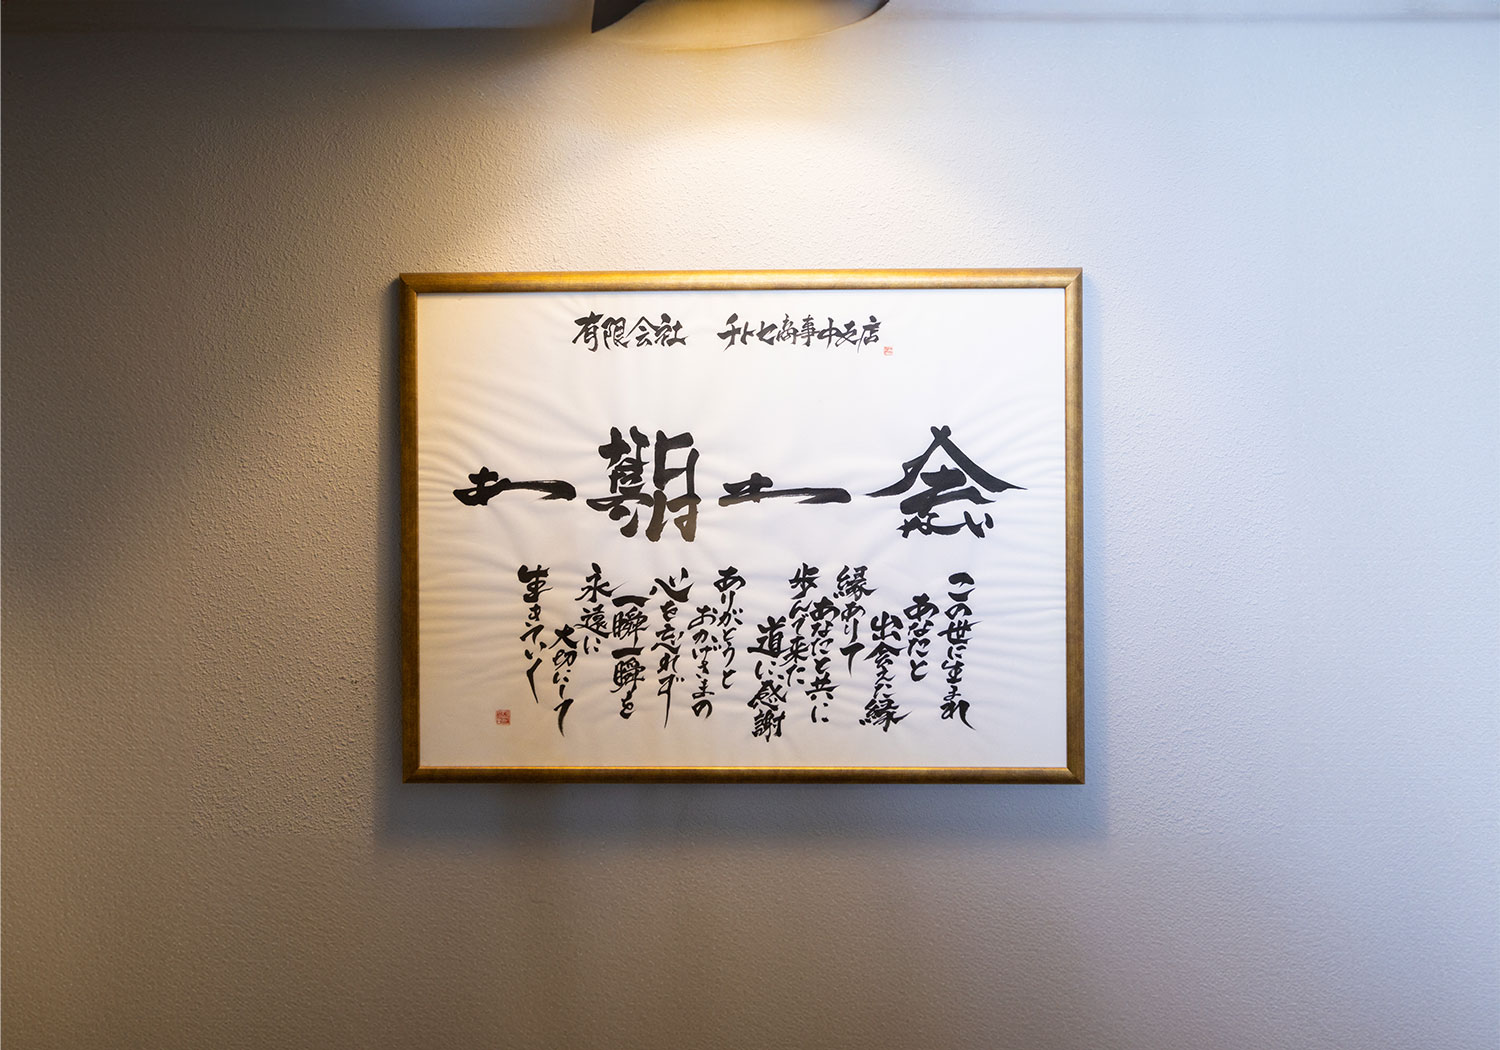 有限会社 チトセ商事中支店
一期一会
この世に生まれ
あなたと
出会えた縁
縁ありて
あなたと共に
歩んで来た
道に感謝
ありがとうと
おかげさまの
心を忘れず
一瞬一瞬を
永遠に
大切にして
生きていく